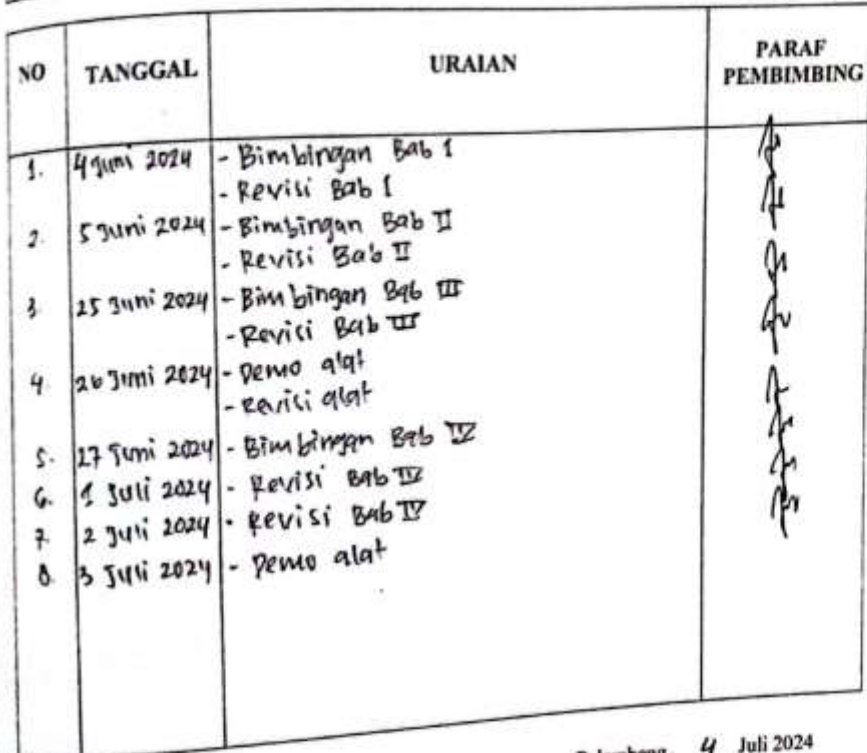 NO TANGGAL URAIAN PARAF PEMBIMBING
1. 4 Juni 2024 - Bimbingan Bab I
- Revisi Bab I
2. 5 Juni 2024 - Bimbingan Bab II
- Revisi Bab II
3. 25 Juni 2024 - Bimbingan Bab III
- Revisi Bab III
4. 26 Juni 2024 - Demo alat
- Revisi alat
5. 27 Juni 2024 - Bimbingan Bab IV
6. 1 Juli 2024 - Revisi Bab IV
7. 2 Juli 2024 - Revisi Bab IV
8. 3 Juli 2024 - Demo alat
4 Juli 2024